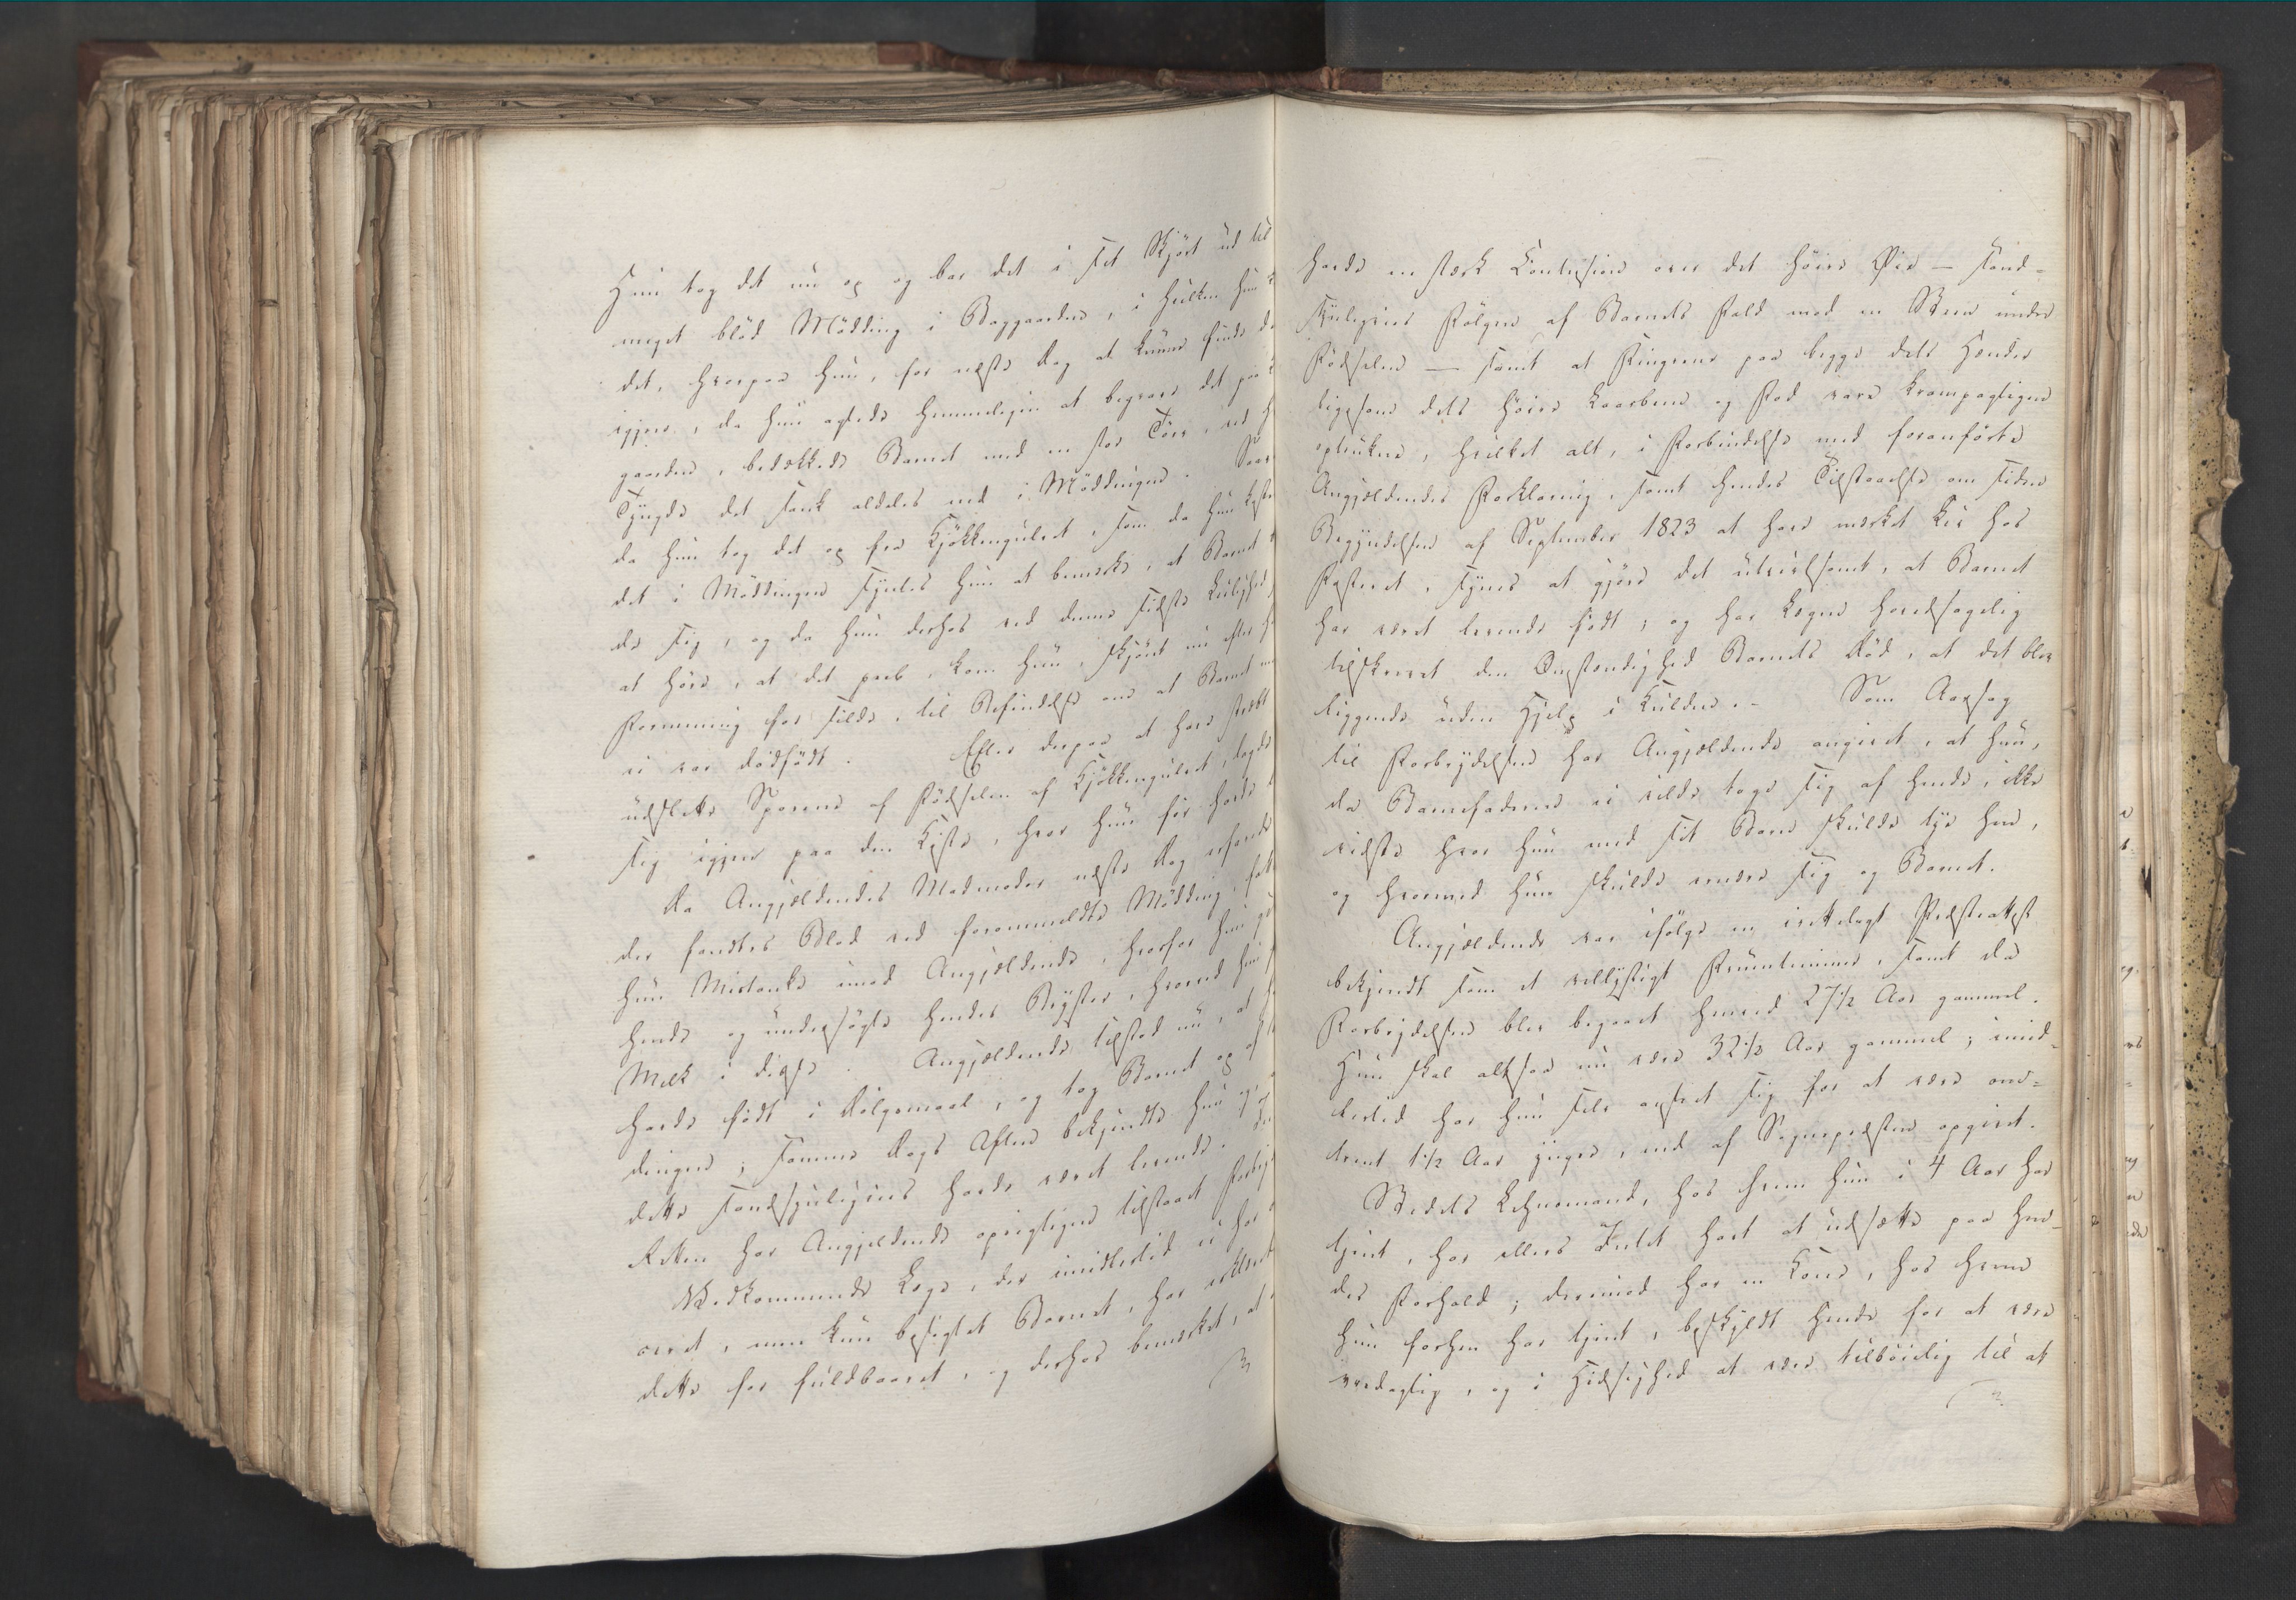 Hun tog det nu op og bar det i sit Skjört ud til
meget blöd Mödding i Baggaarden, i hvilken hun
det, hvorpaa hun, for næste Dag at kunne finde
igjen, da hun agtede hemmeligen at begrave det paa
gaarden, bedækkede Barnet med en stor Törv, ved
Tyngde det sank aldeles ned i Möddingen. Saa
da hun tog det op fra Kjökkengulvet, som da hun kaste
det i Möddingen syntes hun at bemærke, at Barnet
de sig, og da hun derhos ved denne sidste Leilighed
at höre, at det peeb, kom hun, skjönt nu efter
Formening for silde, til Besindelse om at Barnet
ei var dödfödt. Efter derpaa at have stræbt
udslette Sporene af Födselen af Kjökkengulvet, lagde
sig igjen paa den Kiste, hvor hun för havde
Da Angjældendes Madmoder næste Dag erfarede
der fandtes Blod ved forommeldte Mödding, fat
hun Mistanke imod Angjældende, hvorfor hun
hende og undersögte hendes Bryster, hvorved hun
Melk i disse. Angjældende tilstod nu, at
havde födt i Dölgsmaal, og tog Barnet op af
dingen; samme Dags Aften bekjendte hun og
dette sandsynligviis havde været levende.
Retten har Angjeldende oprigtigen tilstaaet
Vedkommende Læge, der imidlertid ei har
ceret, men kun besigtet Barnet, har erklæret
dette for fuldbaaret, og derhos bemærket, at
havde en stærk Contusion over det höire Öie – sand-
synligviis Fölgen af Barnets Fald mod en Steen under
Födselen – samt at Fingrene paa begge dets Hænder
ligesom dets höire Laarbeen og Fod vare krampagtigen
optrukne, hvilket alt, i Forbindelse med foranförte
Angjældendes Forklaring, samt hendes Tilstaaelse om siden
Begyndelsen af September 1823 at have mærket Liv hos
Fosteret, synes at gjöre det utvivlsomt, at Barnet
har været levende födt; og har Lægen hovedsagelig
tilskrevet den Omstændighed Barnets Död, at det blev
liggende uden Hjelp i Kulden. – Som Aarsag
til Forbrydelsen har Angjældende angivet, at hun,
da Barnefaderen ei vilde tage sig af hende, ikke
vidste hvor hun med sit Barn skulde tye hen,
og hvormed hun skulde ernære sig og Barnet.
Angjældende var ifölge en irettelagt Præsteattest
bekjendt som et vellystigt Fruentimmer, samt da
Forbrydelsen blev begaaet henved 27 1/2 Aar gammel.
Hun skal altsaa nu være 32 1/2 Aar gammel; imid-
lertid har hun selv anseet sig for at være om-
trent 1 1/2 Aar yngre, end af Sognepræsten opgivet.
Stedets Lehnsmand, hos hvem hun i 4 Aar har
tjent, har ellers Intet havt at udsætte paa hen-
des Forhold; derimod har en Kone, hos hvem
hun forhen har tjent, beskyldt hende for at være
vredagtig, og i Hidsighed at være tilböielig til at